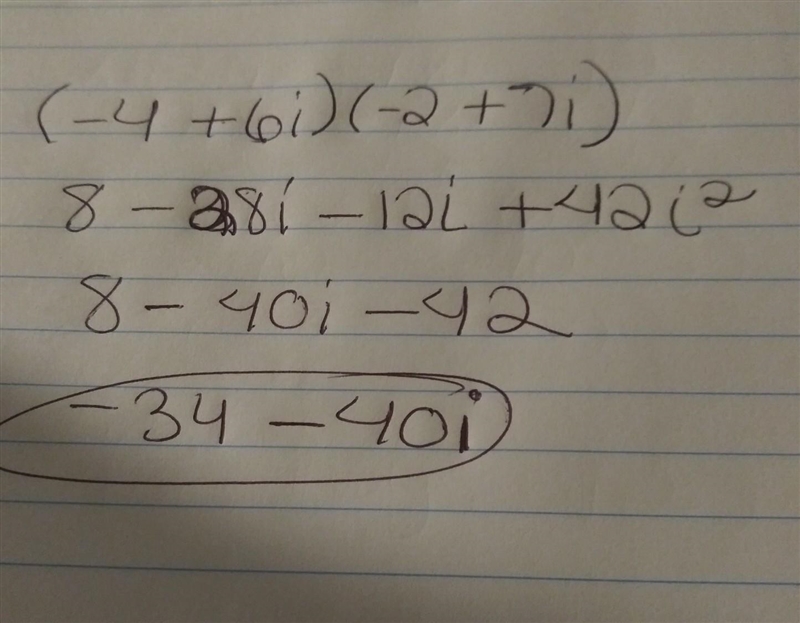 (-4 + 6i)(-2 + 7i)
8 - 28i - 12i + 42i²
8 - 40i - 42
-34 - 40i